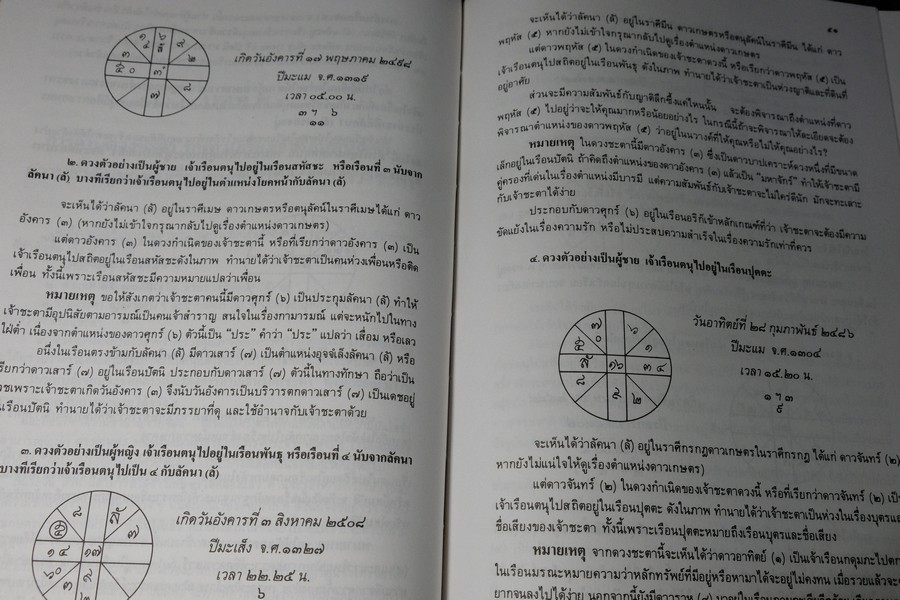 เกิดวันอังคารที่ ๑๗ พฤษภาคม ๒๔๙๘
ปีมะแม จ.ศ.๑๓๑๙
เวลา ๐๕.๐๐ น.
๓ ฯ ๖
๑๑
๒. ดวงตัวอย่างเป็นผู้ชาย เจ้าเรือนตนุไปอยู่ในเรือนสหัสชะ หรือเรือนที่ ๓ นับจาก
ลัคนา (ลั) บางทีเรียกว่าเจ้าเรือนตนุไปอยู่ในตำแหน่งโยคหน้ากับลัคนา (ลั)
จะเห็นได้ว่าลัคนา (ลั) อยู่ในราศีเมษ ดาวเกษตรหรือตนุลัคน์ในราศีเมษได้แก่ ดาว
อังคาร (๓) (หากยังไม่เข้าใจกรุณากลับไปดูเรื่องตำแหน่งดาวเกษตร)
แต่ดาวอังคาร (๓) ในดวงกำเนิดของเจ้าชะตานี้ หรือที่เรียกว่าดาวอังคาร (๓) เป็น
เจ้าเรือนตนุไปสถิตอยู่ในเรือนสหัสชะดังในภาพ ทำนายได้ว่าเจ้าชะตาเป็นคนห่วงเพื่อนหรือติด
เพื่อน ทั้งนี้เพราะเรือนสหัสชะมีความหมายแปลว่าเพื่อน
หมายเหตุ ขอให้สังเกตว่าเจ้าชะตาคนนี้มีดาวศุกร์ (๖) เป็นประกุมลัคนา (ลั) ทำให้
เจ้าชะตามีอุปนิสัยตามอารมณ์เป็นคนเจ้าสำราญ สนใจในเรื่องกามารมณ์ แต่จะหนักไปในทาง
ใฝ่ต่ำ เนื่องจากตำแหน่งของดาวศุกร์ (๖) ตัวนี้เป็น “ประ” คำว่า “ประ” แปลว่า เสื่อม หรือเลว
อนึ่งในเรือนตรงข้ามกับลัคนา (ลั) มีดาวเสาร์ (๗) เป็นตำแหน่งอุจจ์เล็งลัคนา (ลั) หรือ
เรียกว่าดาวเสาร์ (๗) อยู่ในเรือนปัตนิ ประกอบกับดาวเสาร์ (๗) ตัวนี้ในทางทักษา ถือว่าเป็น
เดชเพราะเจ้าชะตาเกิดวันอังคาร (๓) จึงนับวันอังคารเป็นบริวารตกดาวเสาร์ (๗) เป็นเดชอยู่
ในเรือนปัตนิ ทำนายได้ว่าเจ้าชะตาจะมีภรรยาที่ดุ และใช้อำนาจกับเจ้าชะตาด้วย
๓. ดวงตัวอย่างเป็นผู้หญิง เจ้าเรือนตนุไปอยู่ในเรือนพันธุ หรือเรือนที่ ๔ นับจากลัคนา
บางทีเรียกว่าเจ้าเรือนตนุไปเป็น ๔ กับลัคนา (ลั)
เกิดวันอังคารที่ ๓ สิงหาคม ๒๕๐๘
ปีมะเส็ง จ.ศ.๑๓๒๗
เวลา ๒๒.๒๕ น.
๖
๕๑
จะเห็นได้ว่าลัคนา (ลั) อยู่ในราศีมีน ดาวเกษตรหรือตนุลัคน์ในราศีมีน ได้แก่ ดาว
พฤหัส (๕) หากยังไม่เข้าใจกรุณากลับไปดูเรื่องตำแหน่งดาวเกษตร
แต่ดาวพฤหัส (๕) ในดวงกำเนิดของเจ้าชะตาดวงนี้ หรือเรียกว่าดาวพฤหัส (๕) เป็น
เจ้าเรือนตนุไปสถิตอยู่ในเรือนพันธุ ดังในภาพ ทำนายได้ว่าเจ้าชะตาเป็นห่วงญาติและที่ดินที่
อยู่อาศัย
ส่วนจะมีความสัมพันธ์กับญาติลึกซึ้งแค่ไหนนั้น จะต้องพิจารณาถึงตำแหน่งที่ดาว
พฤหัส (๕) ไปอยู่ว่าจะให้คุณมากหรือน้อยอย่างไร ในกรณีนี้ถ้าจะพิจารณาให้ละเอียดจะต้อง
พิจารณาตำแหน่งของดาวพฤหัส (๕) ว่าอยู่ในนวางค์ที่ให้คุณหรือไม่ให้คุณอย่างไร?
หมายเหตุ ในดวงชะตานี้มีดาวอังคาร (๓) ซึ่งเป็นดาวบาปเคราะห์ดวงหนึ่งที่มีขนาด
เล็กอยู่ในเรือนปัตนิ ถ้าคิดถึงตำแหน่งของดาวอังคาร (๓) แล้วเป็น “มหาจักร์” ทำให้เจ้าชะตามี
คู่ครองที่เด่นในเรื่องตำแหน่งมีบารมี แต่ความสัมพันธ์กับเจ้าชะตาจะไม่ใคร่ดีนัก มักจะทะเลาะ
กับเจ้าชะตาได้ง่าย
ประกอบกับดาวศุกร์ (๖) อยู่ในเรือนอริก็เข้าหลักเกณฑ์ที่ว่า เจ้าชะตาจะต้องมีความ
ขัดแย้งในเรื่องความรัก หรือไม่ประสบความสำเร็จในเรื่องความรักเท่าที่ควร
๔. ดวงตัวอย่างเป็นผู้ชาย เจ้าเรือนตนุไปอยู่ในเรือนปุตตะ
วันอาทิตย์ที่ ๒๘ กุมภาพันธ์ ๒๔๘๖
ปีมะแม จ.ศ.๑๓๐๔
เวลา ๑๕.๒๐ น.
๑ ฯ ๓
๙
จะเห็นได้ว่าลัคนา (ลั) อยู่ในราศีกรกฎดาวเกษตรในราศีกรกฎ ได้แก่ ดาวจันทร์ (๒)
หากยังไม่แน่ใจให้ดูเรื่องตำแหน่งดาวเกษตร)
แต่ดาวจันทร์ (๒) ในดวงกำเนิดของเจ้าชะตาดวงนี้ หรือที่เรียกว่าดาวจันทร์ (๒) เป็น
เจ้าเรือนตนุไปสถิตอยู่ในเรือนปุตตะ ดังในภาพ ทำนายได้ว่าเจ้าชะตาเป็นห่วงในเรื่องบุตรและ
ชื่อเสียงของเจ้าชะตา ทั้งนี้เพราะเรือนปุตตะหมายถึงเรือนบุตรและชื่อเสียง
หมายเหตุ จากดวงชะตานี้จะเห็นได้ว่าดาวอาทิตย์ (๑) เป็นเจ้าเรือนกดุมภะไปตก
ในเรือนมรณะหมายความว่าหลักทรัพย์ที่มีอยู่หรือหามาได้จะอยู่ไม่คงทน เมื่อรวยแล้วจะ
ยากจนลงไปได้ง่าย นอกจากนี้ยังมีดาวราหู